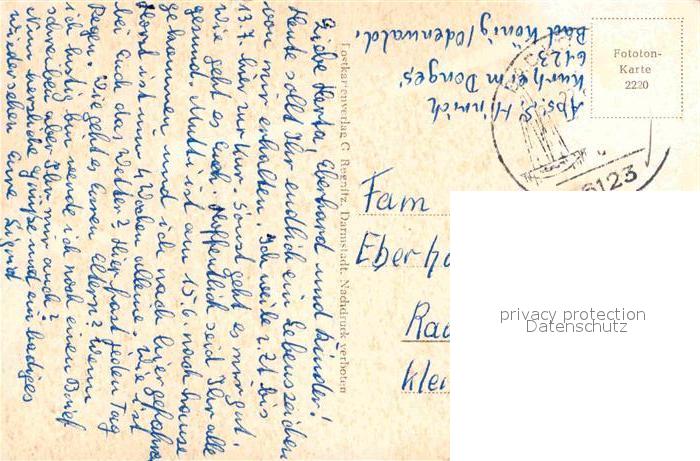 Liebe Herta, Eberhard und Kinder!
Heute sollt Ihr endlich ein Lebenszeichen
von mir erhalten. Ich weile z. Zt bis
13.7. hier zur Kur. Sonst geht es mir gut.
Wie geht es Euch. Hoffentlich seid Ihr alle
gesund. Mutti ist am 15.6. nach hause
gekommen und ich nach hier gefahren
Horst ist nun 4 Wochen alleine. Wie ist
bei Euch das Wetter? Hier fast jeden Tag
Regen. Wie geht es Euren Eltern? Wenn
ich lustig bin sende ich noch einen Brief
schreiben aber Ihr mir auch?
Nun herzliche Grüße und ein baldiges
Wiedersehen Eure Sigrid
Postkartenverlag C. Regnitz, Darmstadt. Nachdruck verboten
Abs. S. Hinrich
Kurheim Donges
6123
Bad König/Odenwald.
Fototon-
Karte
2220
6123
Fam
Eberha
Rad
Klei
privacy protection
Datenschutz